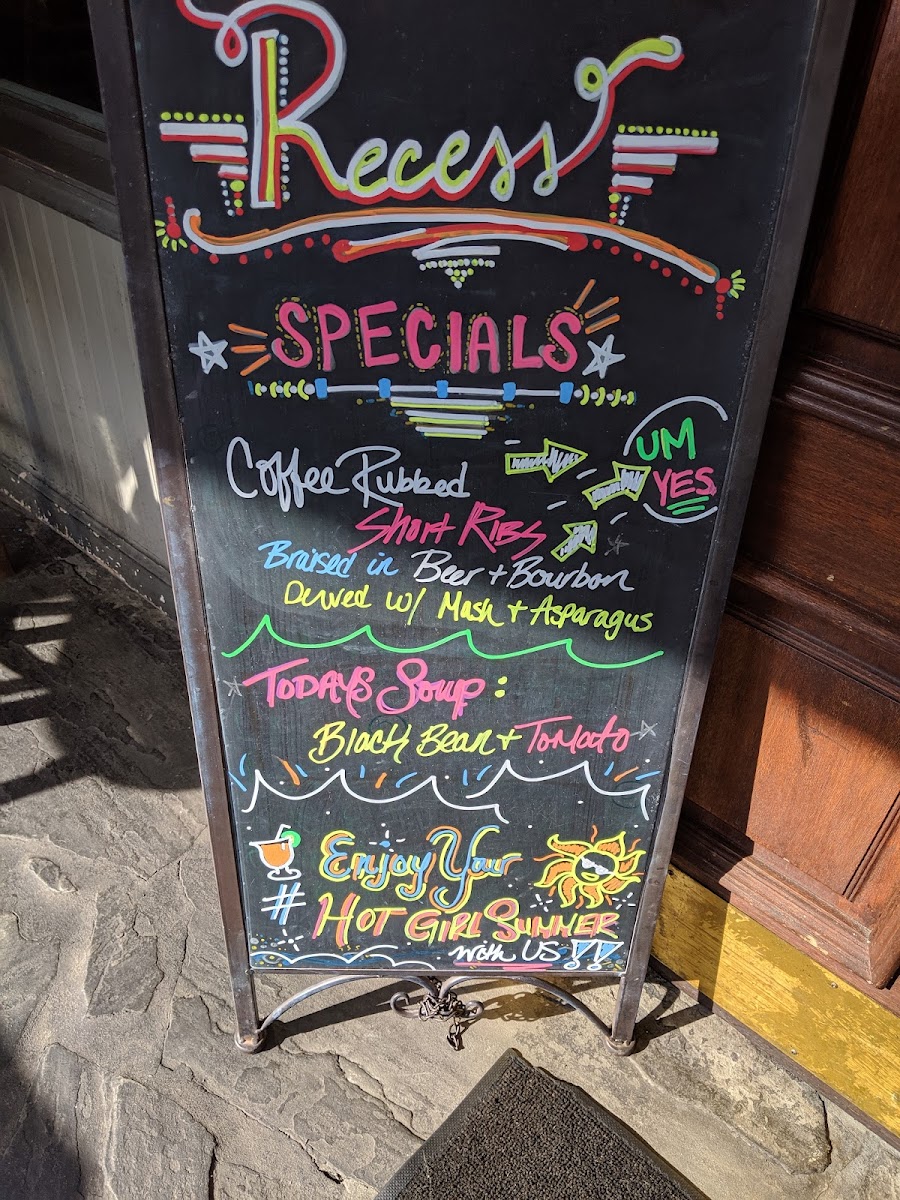 Recess
SPECIALS
UM
YES
Coffee Rubbed
Short Ribs
Braised in Beer + Bourbon
Served w/ Mash + Asparagus
TODAYS Soup:
Black Bean + Tomato
Enjoy Your
# HOT GIRL SUMMER
with US!!